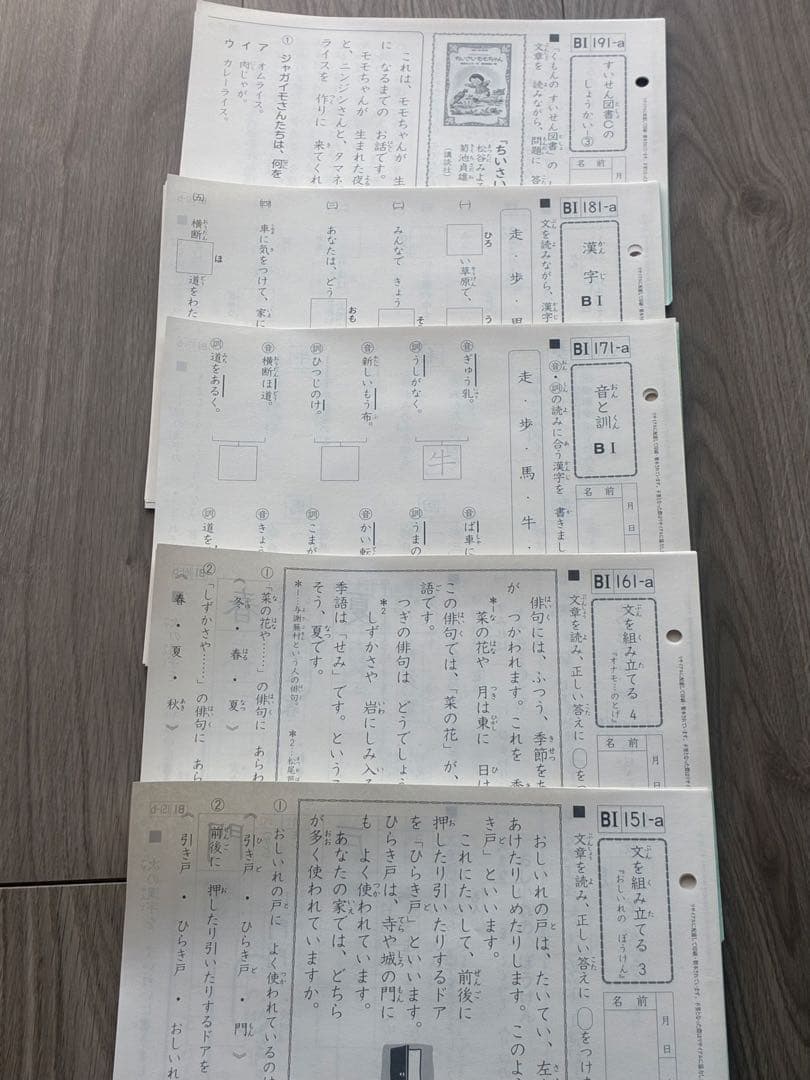 BI 191-a
すいせん図書Cの
しょうかい③
名前
月
■「くもんの すいせん図書」の
文章を 読みながら、問題に 答
「ちいさい
松谷みよ
菊池貞雄
(講談社)
これは、モモちゃんが 生
に なるまでの お話です。
モモちゃんが 生まれた夜
と、ニンジンさんと、タマネ
ライスを 作りに 来てくれ
① ジャガイモさんたちは、何を
ア オムライス。
イ 肉じゃが。
ウ カレーライス。
BI 181-a
漢字
BI
名前
月
■文を読みながら、漢字
走・歩・
(一) □い草原で、
ひろ
(二) みんなで きょう
そ
(三) あなたは、どう
おも
(四) 車に気をつけて、家に
(五) 横断□道をわた
ほ
BI 171-a
音と訓
BI
名前
月
日
■音・訓の読みに合う漢字を 書きまし
走・歩・馬・牛・
音 ぎゅう乳。
訓 うしがなく。
牛
音 新しいもう布。
訓 ひつじのけ。
音 横断ほ道。
訓 道をあるく。
音 ば車に
訓 うまの
音 かい転
訓 こまが
音 きょう
訓 道を
BI 161-a
文を組み立てる 4
『オナモミのとげ』
名前
月
日
■文章を読み、正しい答えに ○をつ
俳句には、ふつう、季節を
が つかわれます。これを 季
*1 菜の花や 月は東に 日は
この俳句では、「菜の花」が、
語です。
つぎの俳句は どうでしょう
*2 しずかさや 岩にしみ入る
季語は「せみ」です。というこ
そう、夏です。
*1…与謝蕪村という人の俳句。
*2…松尾
① 「菜の花や……」の俳句に あらわ
《 冬 ・ 春 ・ 夏 》
② 「しずかさや……」の俳句に あら
《 春 ・ 夏 ・ 秋 》
BI 151-a
文を組み立てる 3
『おしいれの ぼうけん』
名前
月
日
■文章を読み、正しい答えに ○をつけ
おしいれの戸は、たいてい、左
あけたりしめたりします。このよ
き戸」といいます。
これにたいして、前後に
押したり引いたりするドア
を「ひらき戸」といいます。
ひらき戸は、寺や城の門に
も よく使われています。
あなたの家では、どちら
が多く使われていますか。
① おしいれの戸に よく使われているのは
《 引き戸 ・ ひらき戸 ・ 門 》
② 前後に 押したり引いたりするドアを
《 引き戸 ・ ひらき戸 ・ おしいれ